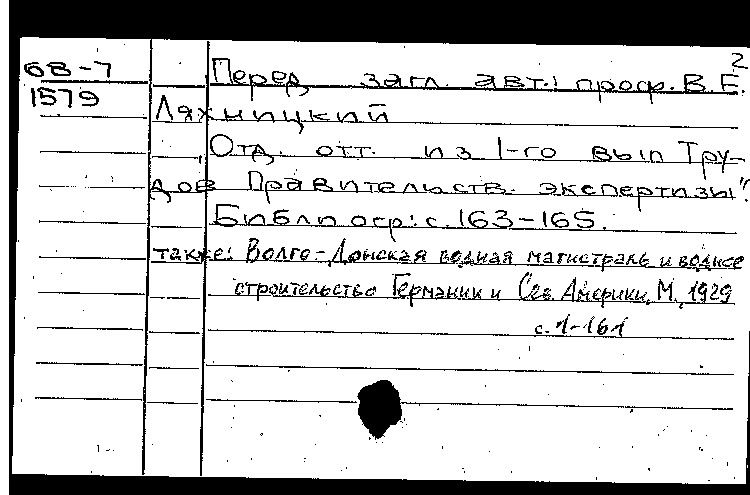 2
68-7 Перед загл. авт.: проф. В.Е.
1579 Ляхницкий
Отд. отт. из 1-го вып Тру-
дов Правительств. экспертизы".
Библиогр: с. 163-165.
также: Волго-Донская водная магистраль и водное
строительство Германии и Сев. Америки, М., 1929
с. 1-161